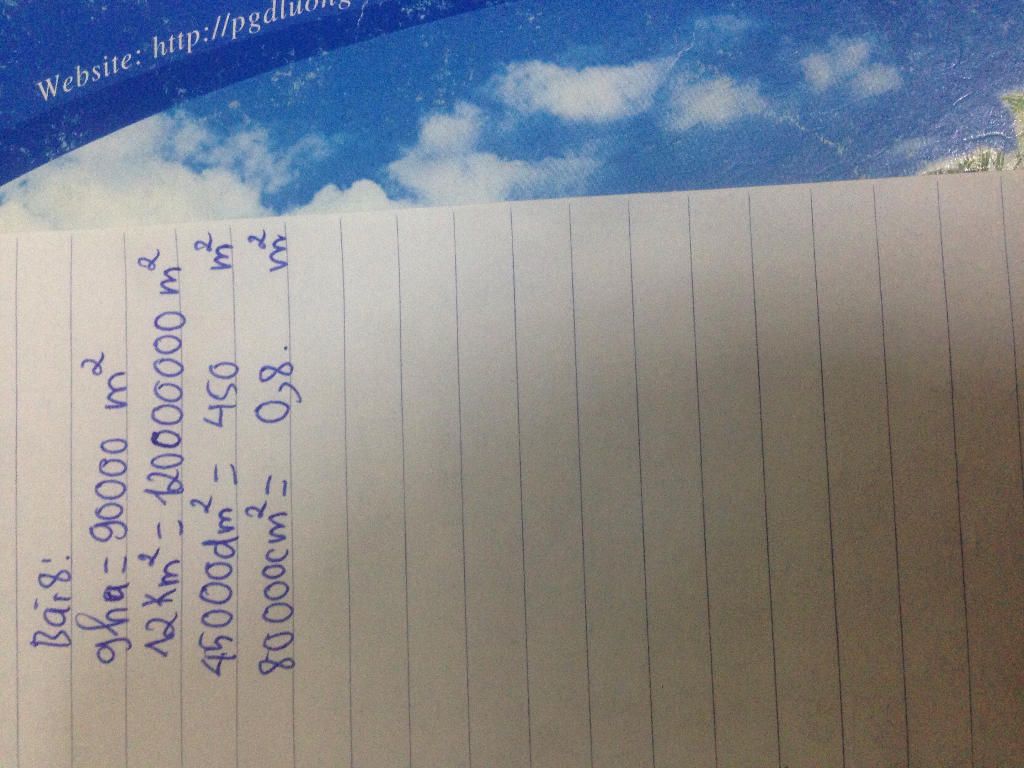 Website: http://pgdluong
Bài 8:
9ha = 90000 m²
12 km² = 12000000 m²
45000dm² = 450 m²
80000cm² = 0,8. m²